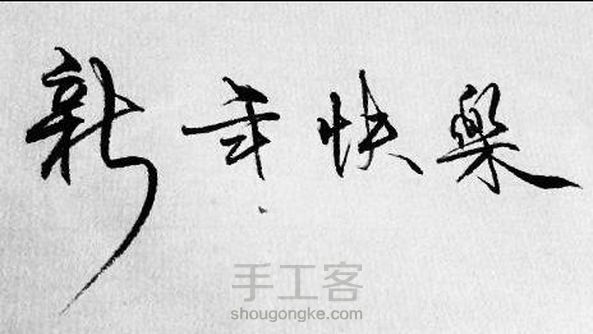 新年快樂
手工客
shougongke.com